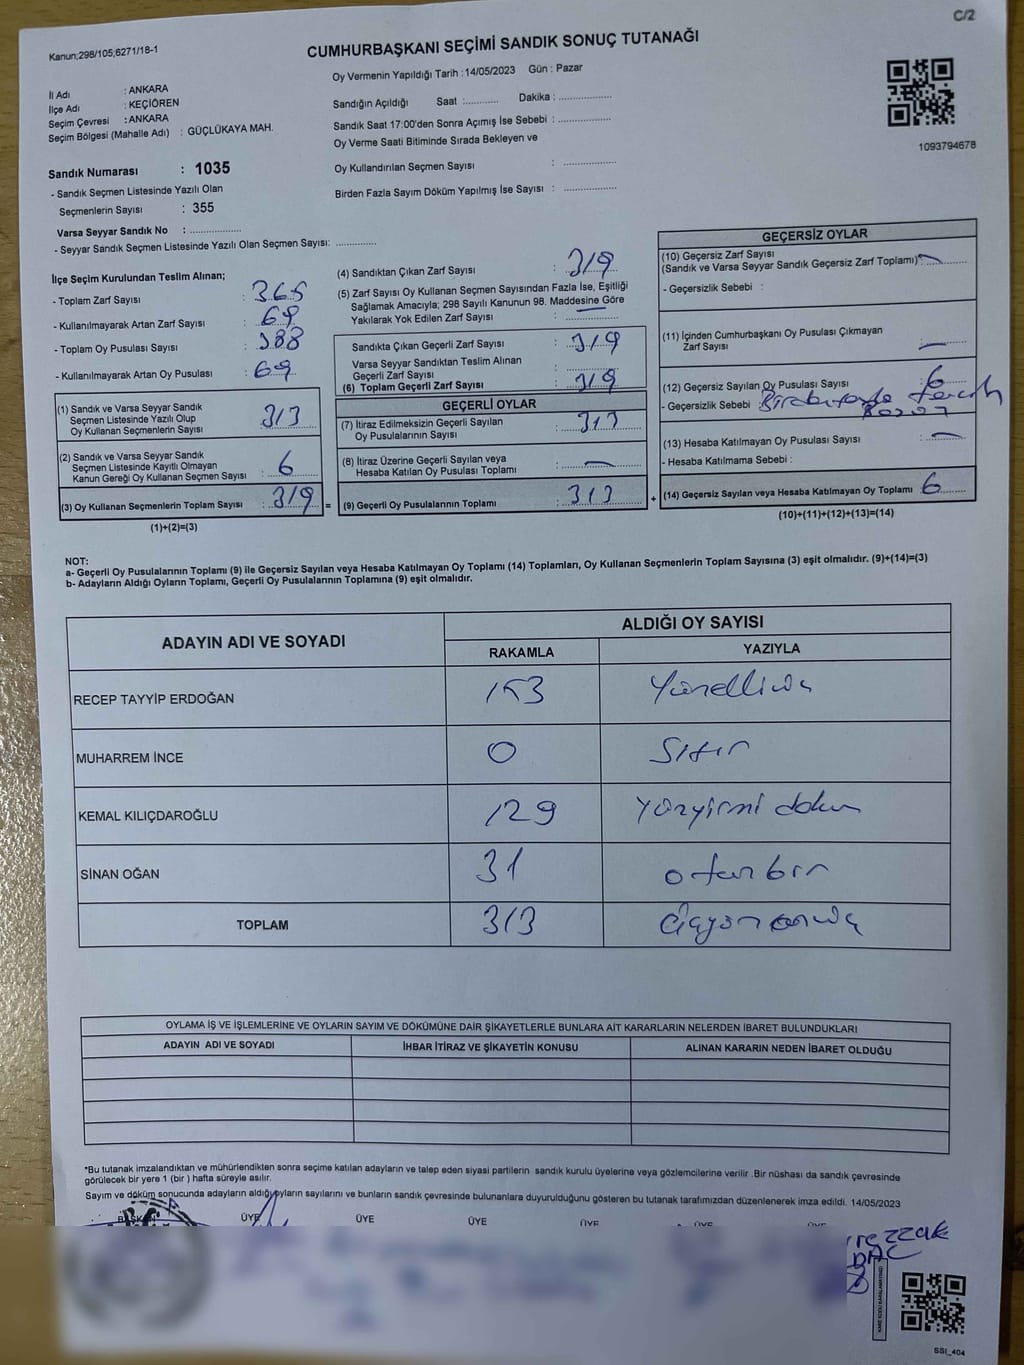 C/2
Kanun;298/105,6271/18-1
CUMHURBAŞKANI SEÇİMİ SANDIK SONUÇ TUTANAĞI
Oy Vermenin Yapıldığı Tarih : 14/05/2023 Gün : Pazar
İl Adı : ANKARA
İlçe Adı : KEÇİÖREN
Seçim Çevresi : ANKARA
Seçim Bölgesi (Mahalle Adı) : GÜÇLÜKAYA MAH.
Sandığın Açıldığı Saat :........... Dakika : .................
Sandık Saat 17:00'den Sonra Açımış İse Sebebi : .................
Oy Verme Saati Bitiminde Sırada Bekleyen ve
Oy Kullandırılan Seçmen Sayısı : .................
Birden Fazla Sayım Döküm Yapılmış İse Sayısı : .................
1093794678
Sandık Numarası : 1035
- Sandık Seçmen Listesinde Yazılı Olan
Seçmenlerin Sayısı : 355
Varsa Seyyar Sandık No : .................
- Seyyar Sandık Seçmen Listesinde Yazılı Olan Seçmen Sayısı: .............
İlçe Seçim Kurulundan Teslim Alınan;
- Toplam Zarf Sayısı : 365
- Kullanılmayarak Artan Zarf Sayısı : 69
- Toplam Oy Pusulası Sayısı : 388
- Kullanılmayarak Artan Oy Pusulası : 69
(1) Sandık ve Varsa Seyyar Sandık
Seçmen Listesinde Yazılı Olup
Oy Kullanan Seçmenlerin Sayısı : 313
(2) Sandık ve Varsa Seyyar Sandık
Seçmen Listesinde Kayıtlı Olmayan
Kanun Gereği Oy Kullanan Seçmen Sayısı : 6
(3) Oy Kullanan Seçmenlerin Toplam Sayısı : 319 =
(1)+(2)=(3)
(4) Sandıktan Çıkan Zarf Sayısı : 319
(5) Zarf Sayısı Oy Kullanan Seçmen Sayısından Fazla İse, Eşitliği
Sağlamak Amacıyla; 298 Sayılı Kanunun 98. Maddesine Göre
Yakılarak Yok Edilen Zarf Sayısı : —
Sandıkta Çıkan Geçerli Zarf Sayısı : 319
Varsa Seyyar Sandıktan Teslim Alınan
Geçerli Zarf Sayısı :
(6) Toplam Geçerli Zarf Sayısı : 319
GEÇERLİ OYLAR
(7) İtiraz Edilmeksizin Geçerli Sayılan
Oy Pusulalarının Sayısı : 313
(8) İtiraz Üzerine Geçerli Sayılan veya
Hesaba Katılan Oy Pusulası Toplamı : —
(9) Geçerli Oy Pusulalarının Toplamı : 313 +
GEÇERSİZ OYLAR
(10) Geçersiz Zarf Sayısı
(Sandık ve Varsa Seyyar Sandık Geçersiz Zarf Toplamı) : —
- Geçersizlik Sebebi :
(11) İçinden Cumhurbaşkanı Oy Pusulası Çıkmayan
Zarf Sayısı : —
(12) Geçersiz Sayılan Oy Pusulası Sayısı : 6
- Geçersizlik Sebebi :
(13) Hesaba Katılmayan Oy Pusulası Sayısı : —
- Hesaba Katılmama Sebebi :
(14) Geçersiz Sayılan veya Hesaba Katılmayan Oy Toplamı : 6
(10)+(11)+(12)+(13)=(14)
NOT:
a- Geçerli Oy Pusulalarının Toplamı (9) ile Geçersiz Sayılan veya Hesaba Katılmayan Oy Toplamı (14) Toplamları, Oy Kullanan Seçmenlerin Toplam Sayısına (3) eşit olmalıdır. (9)+(14)=(3)
b- Adayların Aldığı Oyların Toplamı, Geçerli Oy Pusulalarının Toplamına (9) eşit olmalıdır.
ADAYIN ADI VE SOYADI ALDIĞI OY SAYISI
RAKAMLA YAZIYLA
RECEP TAYYİP ERDOĞAN 153 Yüzelliüç
MUHARREM İNCE 0 Sıfır
KEMAL KILIÇDAROĞLU 129 Yüzyirmi dokuz
SİNAN OĞAN 31 otuzbir
TOPLAM 313 üçyüzonüç
OYLAMA İŞ VE İŞLEMLERİNE VE OYLARIN SAYIM VE DÖKÜMÜNE DAİR ŞİKAYETLERLE BUNLARA AİT KARARLARIN NELERDEN İBARET BULUNDUKLARI
ADAYIN ADI VE SOYADI İHBAR İTİRAZ VE ŞİKAYETİN KONUSU ALINAN KARARIN NEDEN İBARET OLDUĞU
*Bu tutanak imzalandıktan ve mühürlendikten sonra seçime katılan adayların ve talep eden siyasi partilerin sandık kurulu üyelerine veya gözlemcilerine verilir .Bir nüshası da sandık çevresinde
görülecek bir yere 1 (bir ) hafta süreyle asılır.
Sayım ve döküm sonucunda adayların aldığı oyların sayılarını ve bunların sandık çevresinde bulunanlara duyurulduğunu gösteren bu tutanak tarafımızdan düzenlenerek imza edildi. 14/05/2023
BAŞKAN ÜYE ÜYE ÜYE ÜYE ÜYE ÜYE
SSI_404